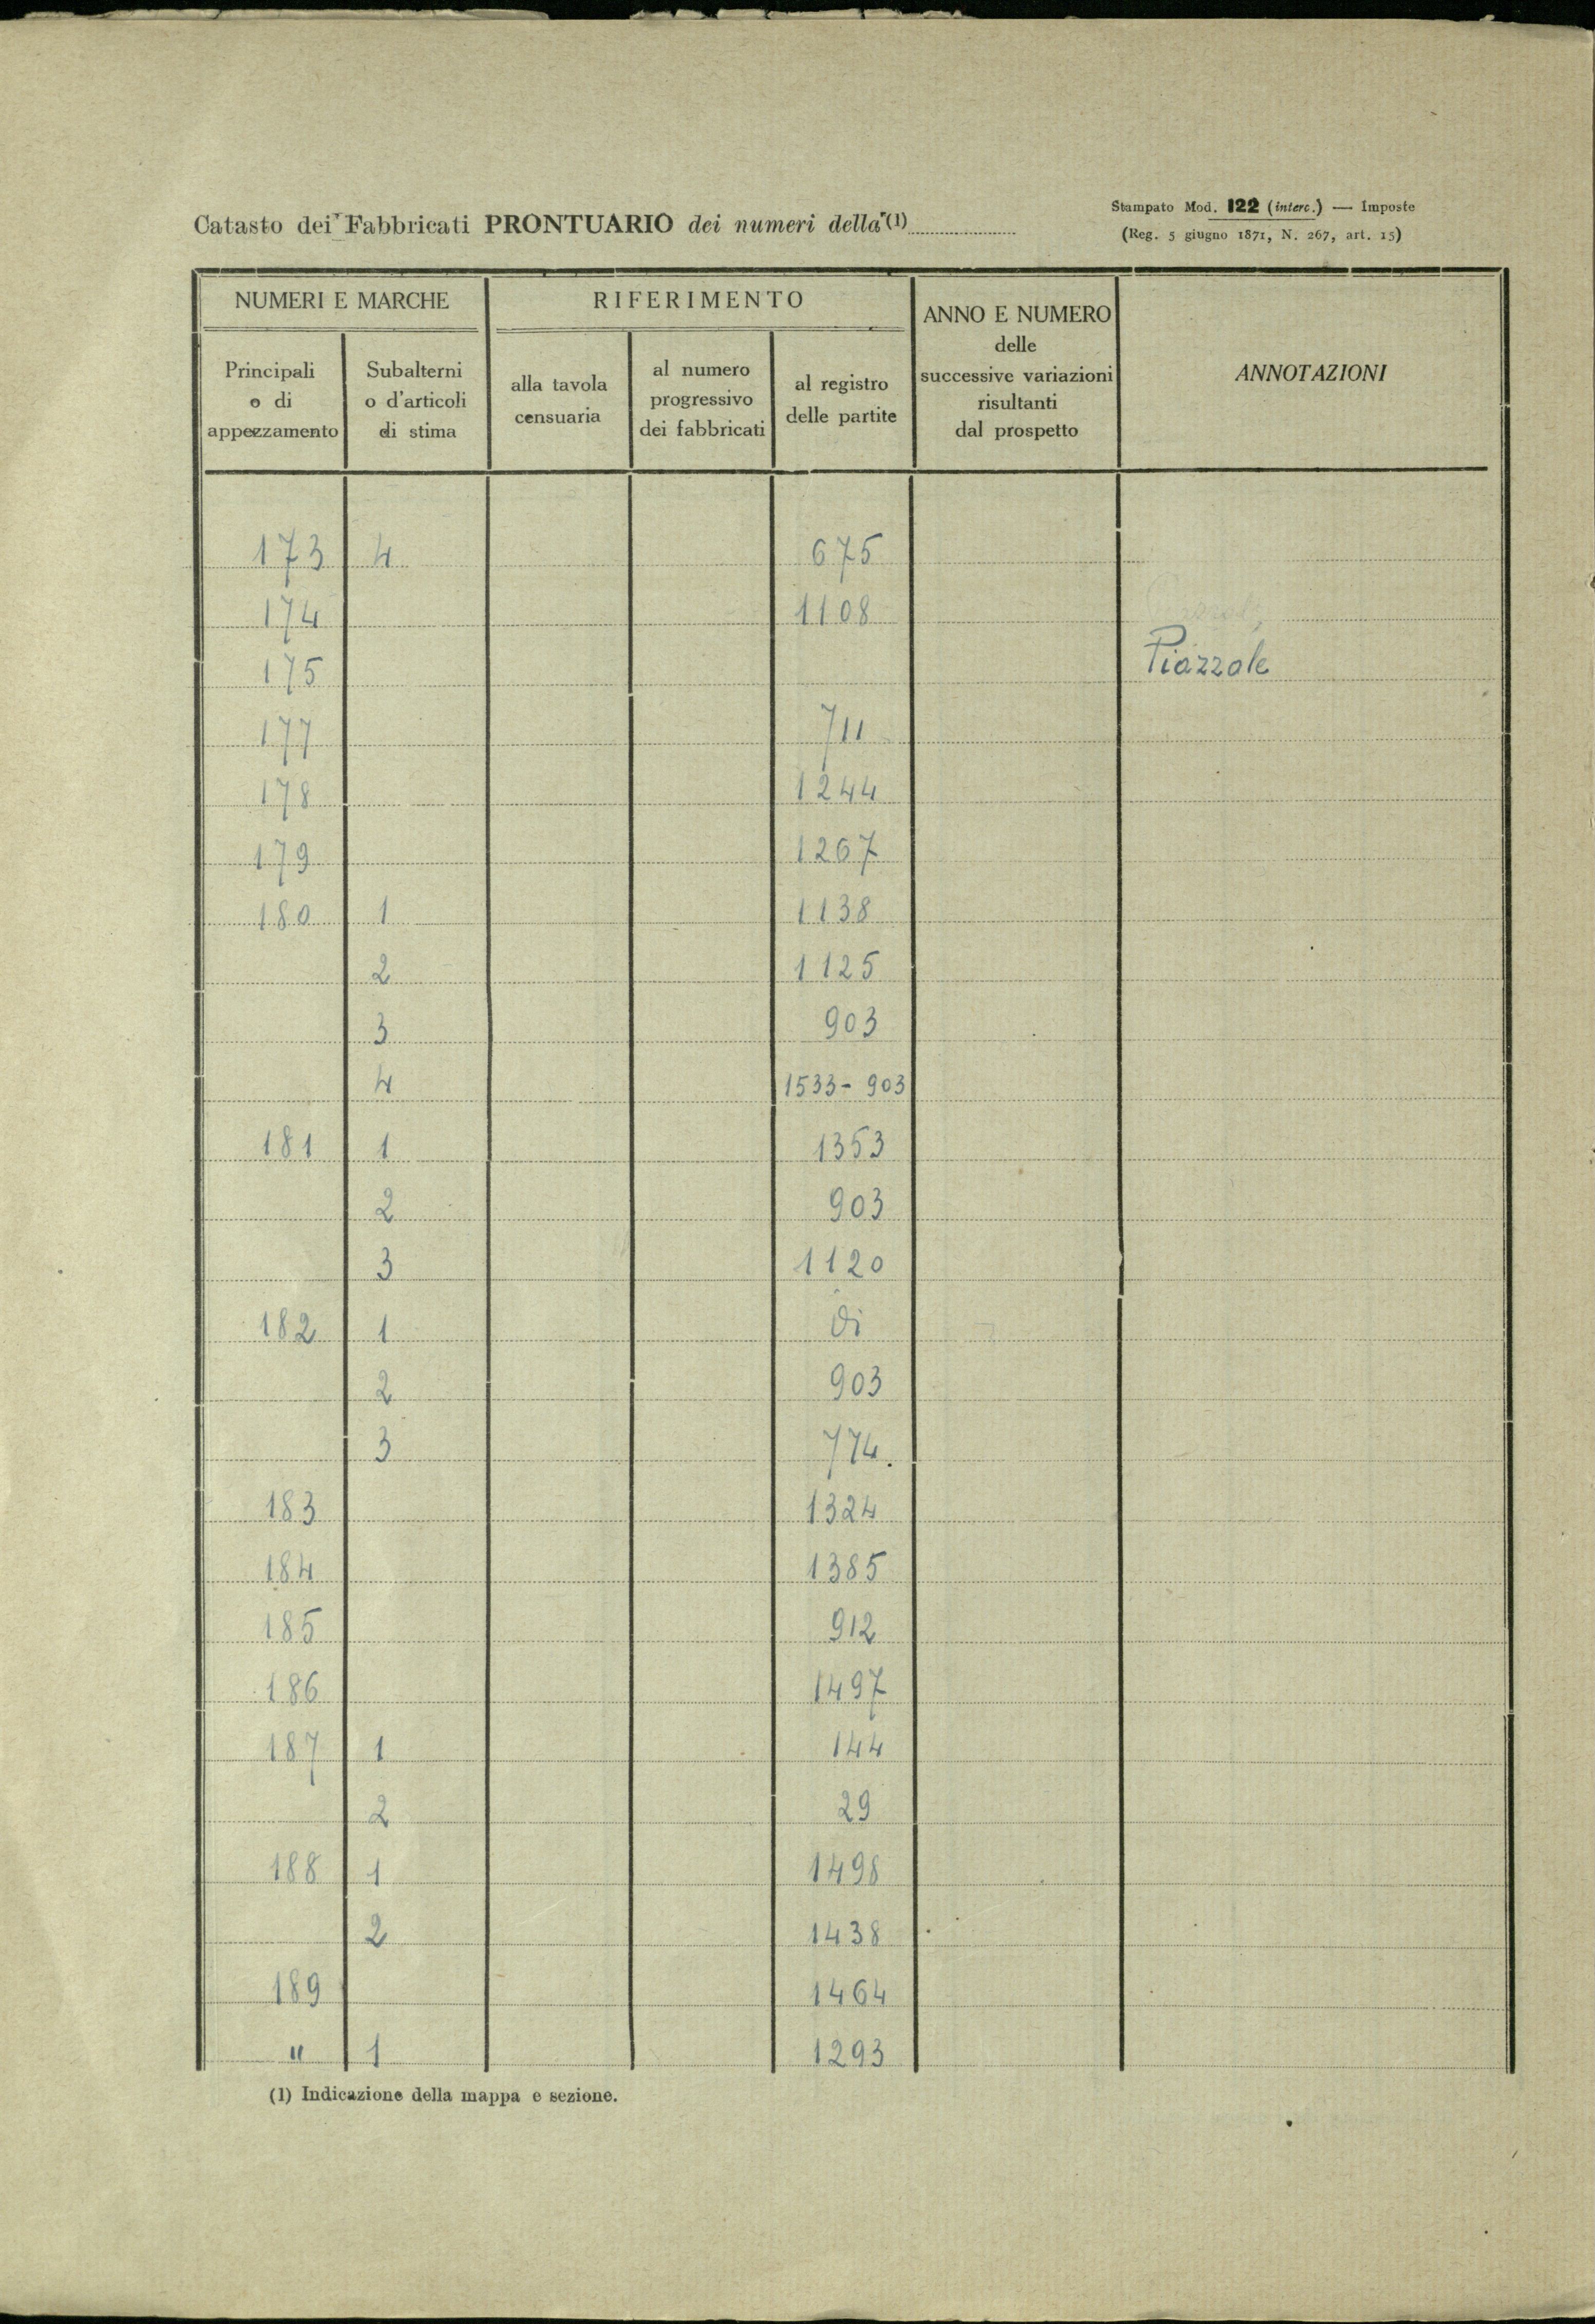 Catasto dei Fabbricati PRONTUARIO dei numeri della (1)
Stampato Mod. 122 (interc.) — Imposte
(Reg. 5 giugno 1871, N. 267, art. 15)
NUMERI E MARCHE
RIFERIMENTO
ANNO E NUMERO
delle
successive variazioni
risultanti
dal prospetto
ANNOTAZIONI
Principali
o di
appezzamento
Subalterni
o d'articoli
di stima
alla tavola
censuaria
al numero
progressivo
dei fabbricati
al registro
delle partite
173 4 675
174 1108
175 Piazzale
177 711
178 1244
179 1267
180 1 1138
2 1125
3 903
4 1533- 903
181 1 1353
2 903
3 1120
182 1 di
2 903
3 774.
183 1324
184 1385
185 912
186 1497
187 1 144
2 29
188 1 1498
2 1438
189 1464
" 1 1293
(1) Indicazione della mappa e sezione.